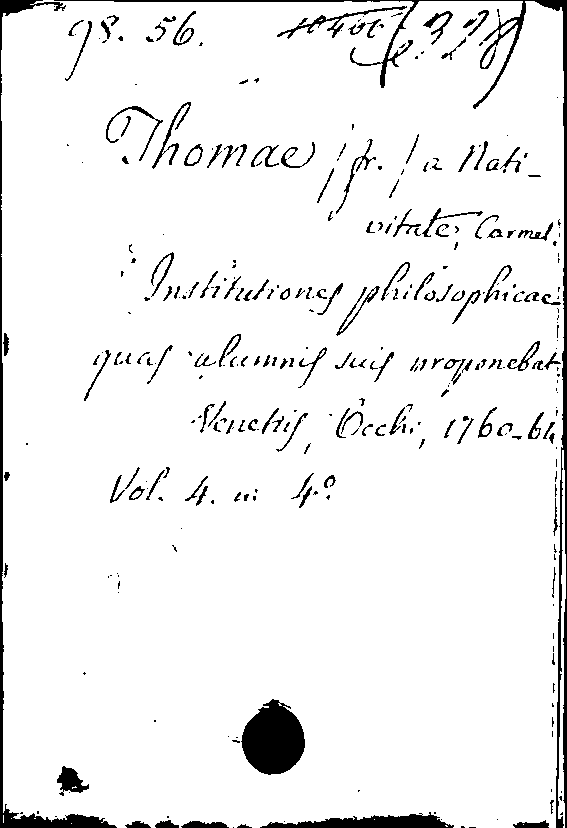 98. 56.
Thomae / fr. / a Nati-
vitate, Carmel.
Institutiones philosophicae
quas alumnis suis proponebat
Venetiis, Occhi, 1760-64
Vol. 4. in 4.º